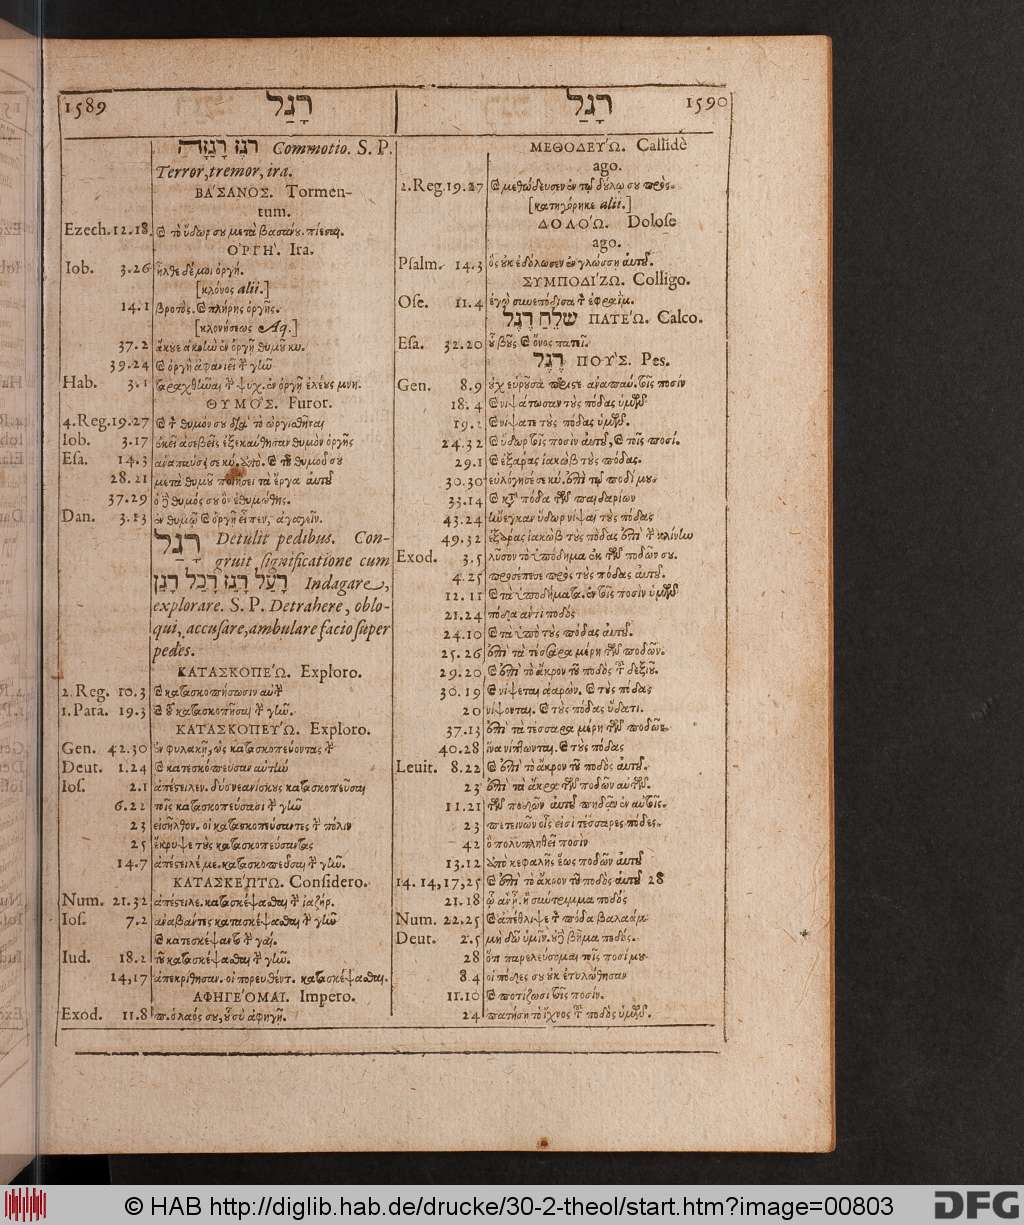 1589 רָגַל
רָגַל 1590
רֹגֶז רָגְזָה Commotio. S. P.
Terror, tremor, ira.
ΒΆΣΑΝΟΣ. Tormen-
tum.
Ezech. 12.18. τὸ ὕδωρ σου μετὰ βασάνου. πίεσαι.
ὈΡΓΉ. Ira.
Iob. 3.26 ἦλθε δέ μοι ὀργή.
[κλόνος alii.]
14.1 βροτὸς. πλήρης ὀργῆς.
[κλονήσεως Aq.]
37.2 ἐν ὀργῇ θυμοῦ κυ.
39.24 ὀργῇ ἀφανιεῖ γῆν
Hab. 3.1 ἐν ὀργῇ ἐλέους μνη.
ΘΥΜΌΣ. Furor.
4. Reg. 19.27 θυμόν σου διὰ τὸ ὀργισθῆναι
Iob. 3.17 ἐκεῖ ἀσεβεῖς ἐξέκαυθησαν θυμὸν ὀργῆς
Esa. 14.3 θυμοῦ σου
28.21 μετὰ θυμοῦ ποιήσει τὰ ἔργα αὐτοῦ
37.29 ὁ θυμός σου ὃν ἐθυμώθης.
Dan. 3.13 ἐν θυμῷ ὀργῇ εἶπεν, ἀγαγεῖν.
רָגַל Detulit pedibus. Con-
gruit significatione cum
רָעַל רָגַז רָכַל רָגַן Indagare,
explorare. S. P. Detrahere, oblo-
qui, accusare, ambulare facio super
pedes.
ΚΑΤΑΣΚΟΠΈΩ. Exploro.
2. Reg. 10.3 κατασκοπήσωσιν
1. Para. 19.3 κατασκοπῆσαι γῆν.
ΚΑΤΑΣΚΟΠΕΎΩ. Exploro.
Gen. 42.30 ἐν φυλακῇ, ὡς κατασκοπεύοντας
Deut. 1.24 κατεσκόπευσαν αὐτὴν
Ios. 2.1 ἀπέστειλεν. δύο νεανίσκους κατασκοπεῦσαι
6.22 τοῖς κατασκοπεύσασι γῆν
23 εἰσῆλθον. οἱ κατασκοπεύσαντες πόλιν
25 ἔκρυψε τοὺς κατασκοπεύσαντας
14.7 ἀπέστειλέ με. κατασκοπεῦσαι γῆν.
ΚΑΤΑΣΚΈΠΤΩ. Considero.
Num. 21.32 ἀπέστειλε. κατασκέψασθαι ἰαζήρ.
Ios. 7.2 ἀναβάντες κατασκέψασθαι γῆν
κατεσκέψαντο γαί.
Iud. 18.2 τοῦ κατασκέψασθαι γῆν.
14,17 ἀπεκρίθησαν. οἱ πορευθέντ. κατασκέψασθαι.
ἈΦΗΓΈΟΜΑΙ. Impero.
Exod. 11.8 π. ὁ λαός σου, οὗ σὺ ἀφηγῇ.
ΜΕΘΟΔΕΎΩ. Callidè
ago.
2. Reg. 19.27 μεθώδευσεν ἐν τῷ δούλῳ σου πρὸς.
[κατηγόρηκε alii.]
ΔΟΛΌΩ. Dolose
ago.
Psalm. 14.3 ὃς οὐκ ἐδόλωσεν ἐν γλώσσῃ αὐτοῦ.
ΣΥΜΠΟΔΊΖΩ. Colligo.
Ose. 11.4 ἐγὼ συνεπόδισα ἐφραΐμ.
שִׁלֵּחַ רֶגֶל ΠΑΤΈΩ. Calco.
Esa. 32.20 οὗ βοῦς ὄνος πατεῖ.
רֶגֶל ΠΟΎΣ. Pes.
Gen. 8.9 οὐχ εὑροῦσα ἀνάπαυ. τοῖς ποσίν
18.4 νιψάτωσαν τοὺς πόδας ὑμῶν
19.2 νίψατε τοὺς πόδας ὑμῶν.
24.32 ὕδωρ τοῖς ποσὶν αὐτοῦ, τοῖς ποσί.
29.1 ἐξάρας ἰακὼβ τοὺς πόδας.
30.30 εὐλόγησέ σε κύ. ἐπὶ τῷ ποδί μου.
33.14 πόδα τῶν παιδαρίων
43.24 ἤνεγκαν ὕδωρ νίψαι τοὺς πόδας
49.32 ἐξάρας ἰακὼβ τοὺς πόδας ἐπὶ κλίνην
Exod. 3.5 λῦσον τὸ ὑπόδημα ἐκ τῶν ποδῶν σου.
4.25 προσέπεσε πρὸς τοὺς πόδας αὐτοῦ.
12.11 τὰ ὑποδήματα. ἐν τοῖς ποσὶν ὑμῶν
21.24 πόδα ἀντὶ ποδὸς
24.10 τὰ ὑπὸ τοὺς πόδας αὐτοῦ.
25.26 ἐπὶ τὰ τέσσαρα μέρη τῶν ποδῶν.
29.20 ἐπὶ τὸ ἄκρον τοῦ ποδὸς τοῦ δεξιοῦ.
30.19 νίψεται ἀαρών. τοὺς πόδας
20 νίψονται. τοὺς πόδας ὕδατι.
37.13 ἐπὶ τὰ τέσσαρα μέρη τῶν ποδῶν.
40.28 ἵνα νίπτωνται. τοὺς πόδας
Leuit. 8.22 ἐπὶ τὸ ἄκρον τοῦ ποδὸς αὐτοῦ.
23 ἐπὶ τὰ ἄκρα τῶν ποδῶν αὐτῶν.
11.21 τῶν ποδῶν αὐτοῦ πηδᾷν ἐν αὐτοῖς.
23 πετεινῶν οἷς εἰσι τέσσαρες πόδες.
42 ὃ πολυπληθεῖ ποσὶν
13.12 ἀπὸ κεφαλῆς ἕως ποδῶν αὐτοῦ
14. 14,17,25 ἐπὶ τὸ ἄκρον τοῦ ποδὸς αὐτοῦ 28
21.18 ᾧ ἂν ᾖ. σύντριμμα ποδὸς
Num. 22.25 ἀπέθλιψε πόδα βαλαάμ
Deut. 2.5 μὴ δῶ ὑμῖν. βῆμα ποδός.
28 ὅτι παρελεύσομαι τοῖς ποσί μου
8.4 οἱ πόδες σου οὐκ ἐτυλώθησαν
11.10 ποτίζωσι τοῖς ποσίν.
24 πατήσῃ τὸ ἴχνος τοῦ ποδὸς ὑμῶν.
© HAB http://diglib.hab.de/drucke/30-2-theol/start.htm?image=00803
DFG